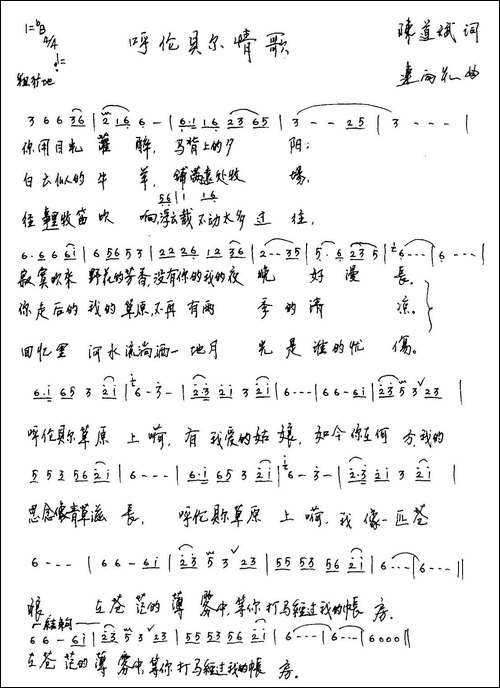 1=♭B
4/4
呼伦贝尔情歌
陳道斌 词
曲
3 6 6 36 | 2 16 6 – | 6·1 16 23 65 | 3 – – 25 | 3 – – – |
你用目光 灌 醉, 马背上的夕 阳;
白云似的牛 羊, 铺满远处牧 場,
56 | 1 16
往事里牧笛吹 响,浮云载不动太多 过 往,
6·6 6 61 | 6 56 5 3 | 22 26 12 36 | 2 – – 35 | 5· 6 23 5 | 6 – – – | 6 – – – |
寂寞吹来 野花的芳香,没有你的我的夜 晚 好 漫 長。
你走后的 我的草原,不再有两 季 的 清 凉。
回忆里 河水流淌洒一地月 光 是 谁的忧 傷。
6·1 65 3 21 | 6 – 3 – | 2·3 21 3 21 | 6 – – – | 6 6 – 61 | 23 5 3 23 |
呼伦贝尔草原 上 啊, 有 我爱的姑 娘, 如今你在何 方,我的
5 5 3 56 21 | 6 – – – | 6·1 65 3 21 | 6 – 3 – | 2·3 21 3 21 |
思念像青草滋 長, 呼伦贝尔草原 上 啊, 我 像一匹苍
6 – – – | 6 6 – 61 | 23 5 3 23 | 55 53 56 21 | 6 – – – | 6 – – – ||
狼 在苍 茫的 薄 雾中,等你 打马经过我的帳 房.
结句
6 6 – 61 | 23 5 3 23 | 55 53 56 21 | 6 – – – | 6 – – – | 6000 ||
在苍 茫的 薄 雾中,等你 打马经过我的帳 房。